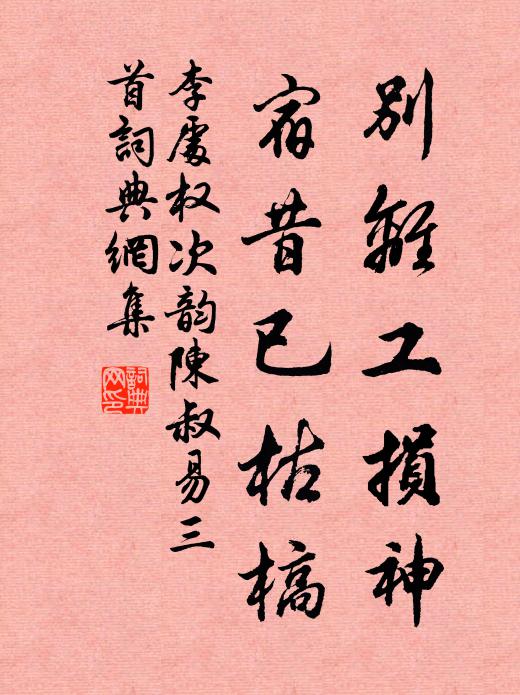 別離工損神
宿昔已枯槁
李處权次韵陳叔易三
首詞典網集
詞典網印